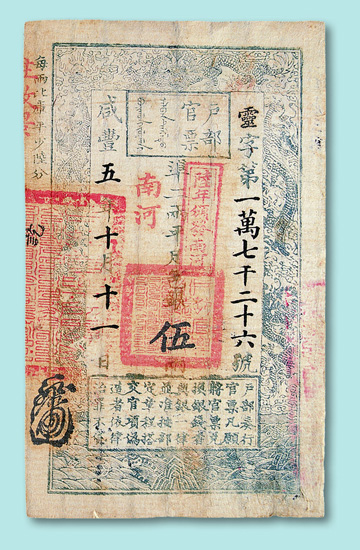 戶部
官票
靈字第一萬七千二十六號
準二兩平足色銀伍兩
咸豐五年十月十一日
南河
每兩比庫平少陸分
戶部奏行
官票凡願
將官票兌
換銀錢者
與銀一律
並准按部
定章程搭
交官項偽
造者依律
治罪不貸